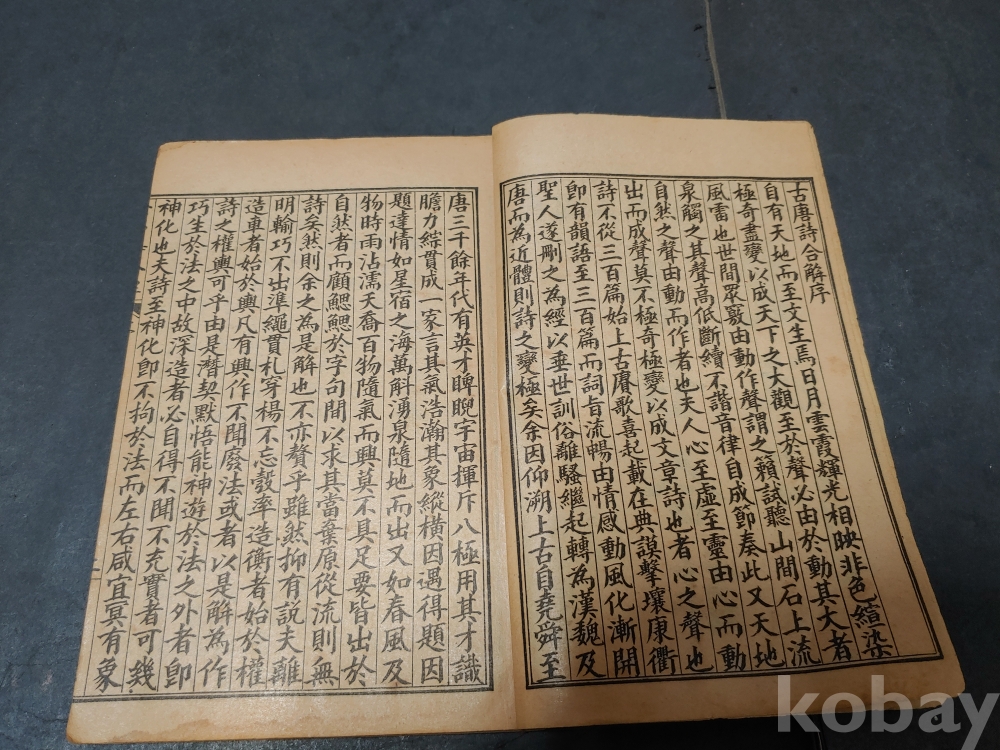 古唐詩合解序
自有天地而至文生焉日月雲霞輝光相映非色繪染
極奇盡變以成天下之大觀至於聲必由於動其大者
風雷也世間眾竅由動作聲謂之籟試聽山間石上流
泉觸之其聲高低斷續不諧音律自成節奏此又天地
自然之聲由動而作者也夫人心至虛至靈由心而動
出而成聲莫不極奇極變以成文章詩也者心之聲也
詩不從三百篇始上古賡歌喜起載在典謨擊壤康衢
即有韻語至三百篇而詞旨流暢由情感動風化漸開
聖人遂刪之為經以垂世訓俗離騷繼起轉為漢魏及
唐而為近體則詩之變極矣余因仰溯上古自堯舜至
唐三千餘年代有英才睥睨宇宙揮斥八極用其才識
膽力綜貫成一家言其氣浩瀚其象縱橫因遇得題因
題達情如星宿之海萬斛湧泉隨地而出又如春風及
物時雨沾濡天喬百物隨氣而興莫不具足要皆出於
自然者而顧鰓鰓於字句間以求其當棄原從流則無
詩矣然則余之為是解也不亦贅乎雖然抑有說夫離
明輸巧不出準繩貫札穿楊不忘彀率造衡者始於權
造車者始於輿尺有興作不聞廢法或者以是解為作
詩之權輿可乎由是潛契默悟能神遊於法之外者即
巧生於法之中故深造者必自得不聞不充實者可幾
神化也夫詩至神化即不拘於法而左右咸宜冥有象
kobay